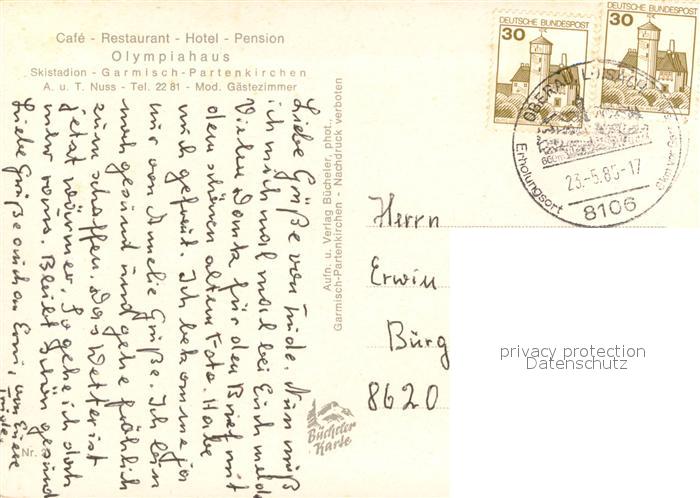 Café - Restaurant - Hotel - Pension
Olympiahaus
Skistadion - Garmisch-Partenkirchen
A. u. T. Nuss - Tel. 22 81 - Mod. Gästezimmer
Liebe Grüße von Trude. Nun muß
ich mich mal bei Euch melden
Vielen Dank für den Brief mit
dem schönen alten Foto. Habe
mich gefreut. Ich bekomme ja
nur von Amelie Grüße. Ich bin
noch gesund und gehe fröhlich
zum schaffen. Das Wetter ist
jetzt wärmer. So gehe ich doch
mehr raus. Bleibt schön gesund
Liebe Grüße auch an Erni, von Eurer
Trude.
Nr.
Aufn. u. Verlag Bücheler, phot.,
Garmisch-Partenkirchen - Nachdruck verboten
Bücheler
Karte
DEUTSCHE BUNDESPOST
30
DEUTSCHE BUNDESPOST
30
OBERAU (LOISACH)
Erholungsort
23.-5.85-17
8106
Herrn
Erwin
Bürg
8620
privacy protection
Datenschutz